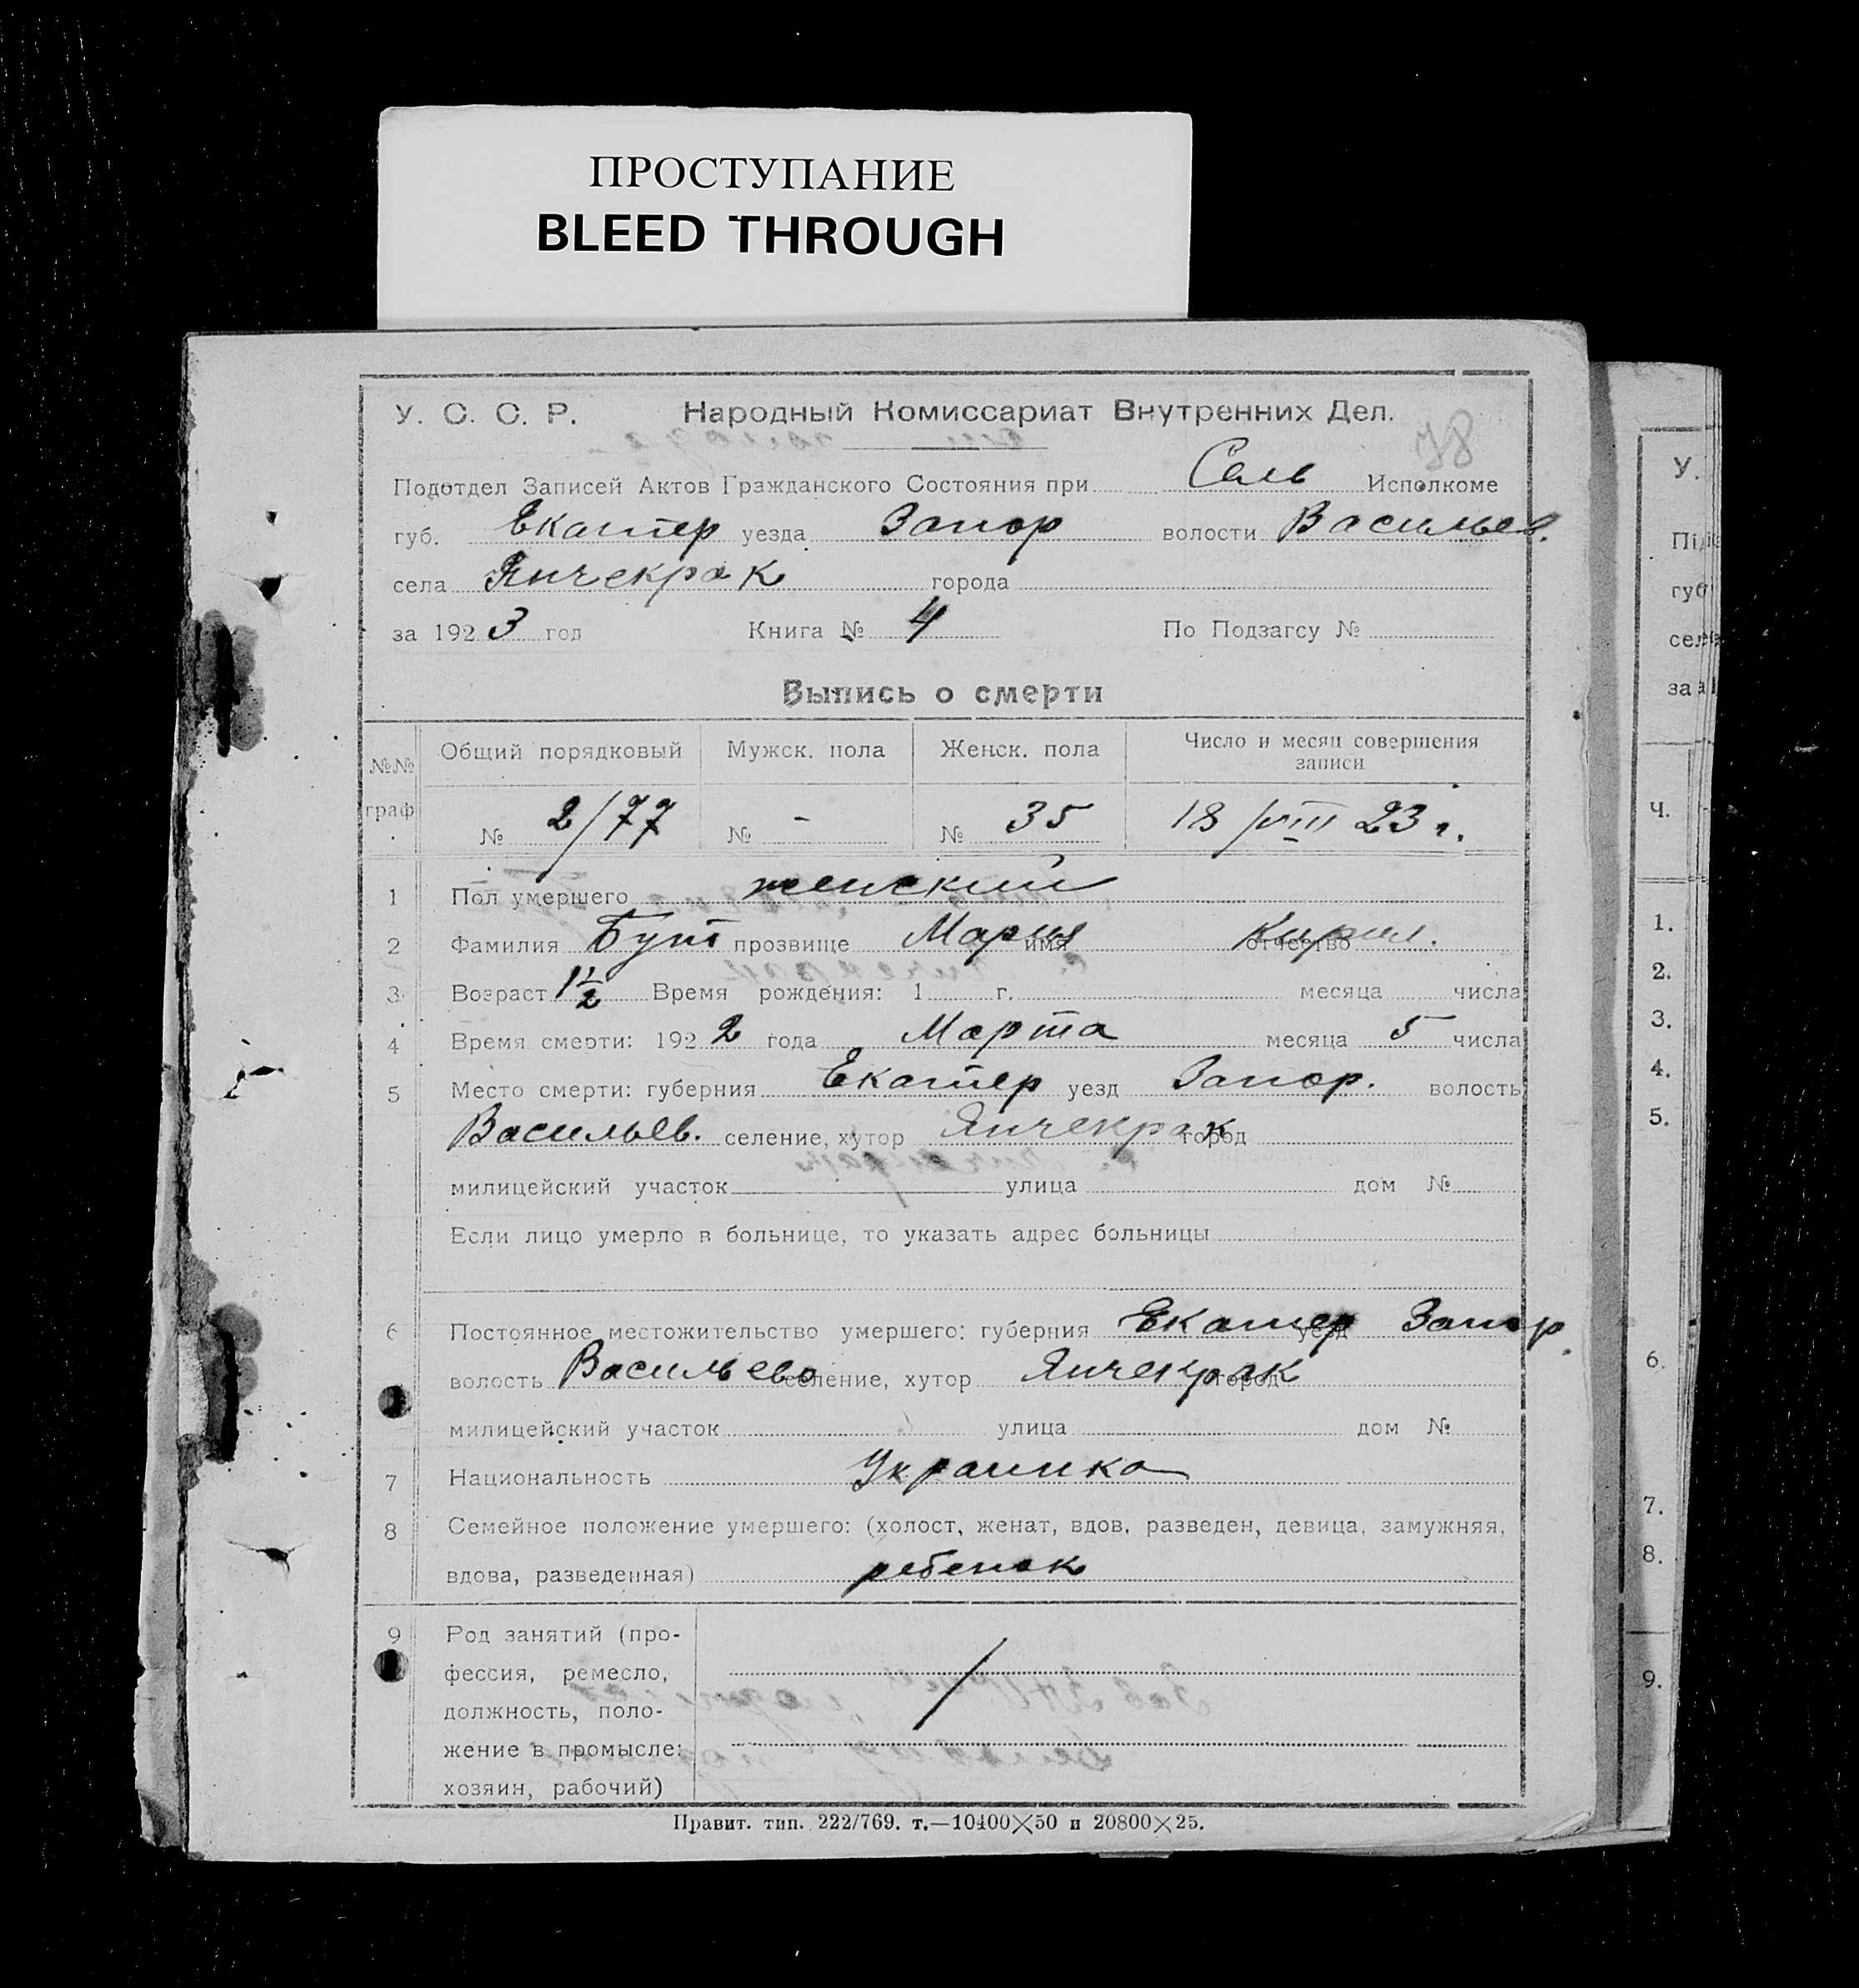 ПРОСТУПАНИЕ
BLEED THROUGH
У. С. С. Р. Народный Комиссариат Внутренних Дел.
Подотдел Записей Актов Гражданского Состояния при Сель Исполкоме
губ. Екатер уезда Запор волости Васильев.
села Янчекрак города
за 1923 год Книга № 4 По Подзагсу №
Выпись о смерти
№№ граф Общий порядковый Мужск. пола Женск. пола Число и месяц совершения записи
№ 2/77 № - № 35 18/VIII 23 г.
1 Пол умершего женский
2 Фамилия Бут прозвище Мария имя Кирил. отчество
3 Возраст 1½ Время рождения: 1 г. месяца числа
4 Время смерти: 1922 года Марта месяца 5 числа
5 Место смерти: губерния Екатер уезд Запор. волость
Васильев. селение, хутор Янчекрак город
милицейский участок улица дом №
Если лицо умерло в больнице, то указать адрес больницы
6 Постоянное местожительство умершего: губерния Екатер уезд Запор.
волость Васильево селение, хутор Янчекрак город
милицейский участок улица дом №
7 Национальность Украинка
8 Семейное положение умершего: (холост, женат, вдов, разведен, девица, замужняя,
вдова, разведенная) ребенок
9 Род занятий (про-
фессия, ремесло,
должность, поло-
жение в промысле:
хозяин, рабочий)
Правит. тип. 222/769. т.—10400×50 и 20800×25.
У.
губ
за
Ч.
1.
2.
3.
4.
5.
6.
7.
8.
9.